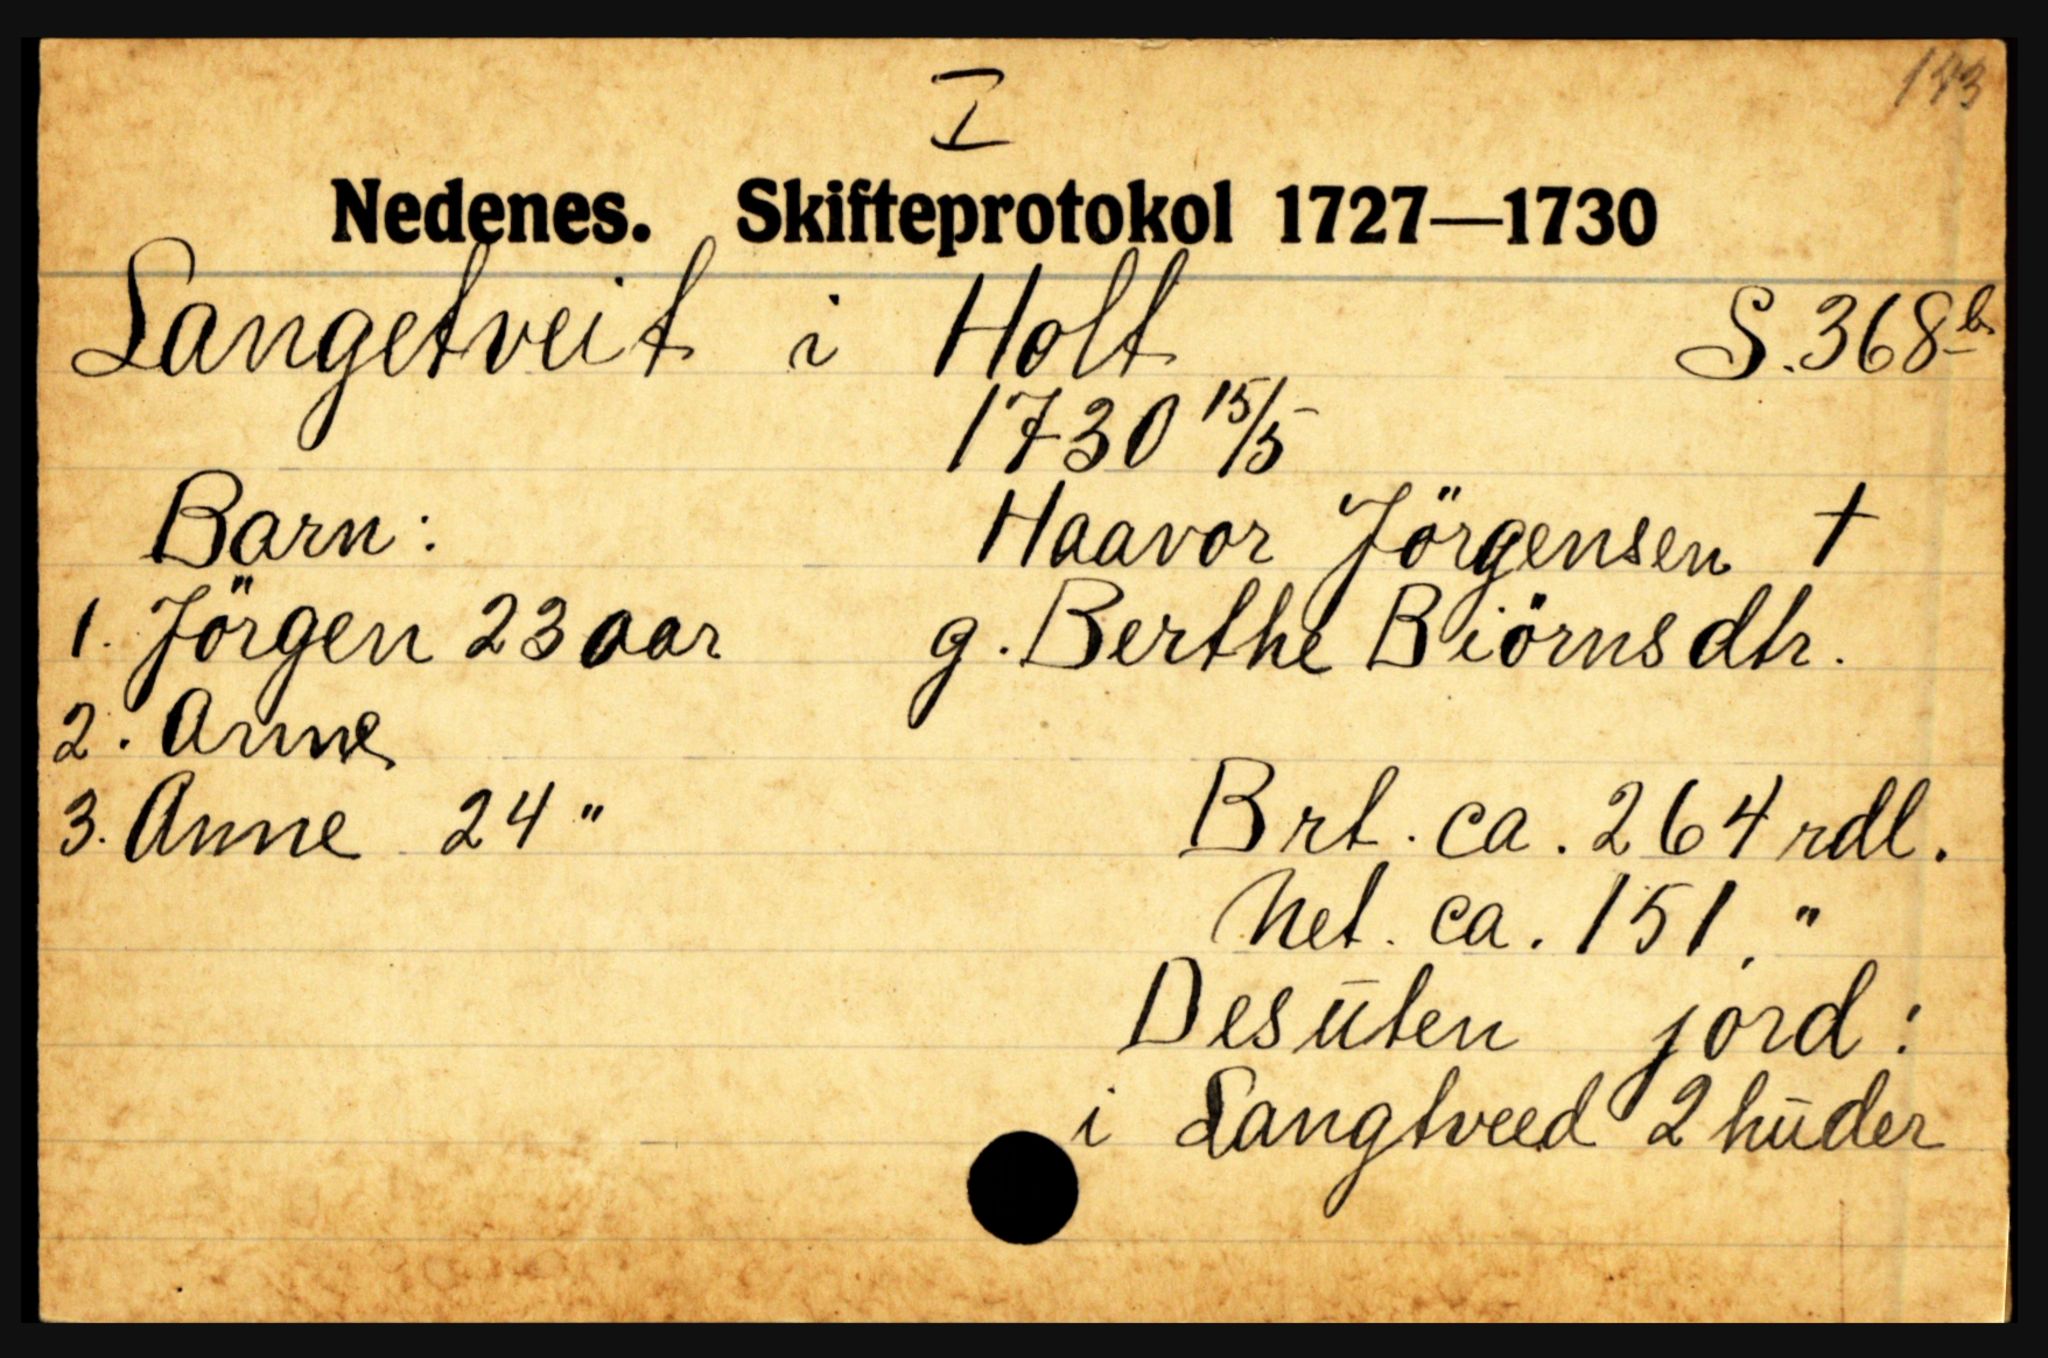 I
143
Nedenes. Skifteprotokol 1727—1730
Langetveit i Holt S. 368 b
1730 15/5
Barn: Haavor Jörgensen †
1. Jörgen 23 aar g. Berthe Biörnsdtr.
2. Anne
3. Anne 24 " Brt. ca. 264 rdl.
Net. ca. 151. "
Desūten jord:
i Langtveed 2 hūder